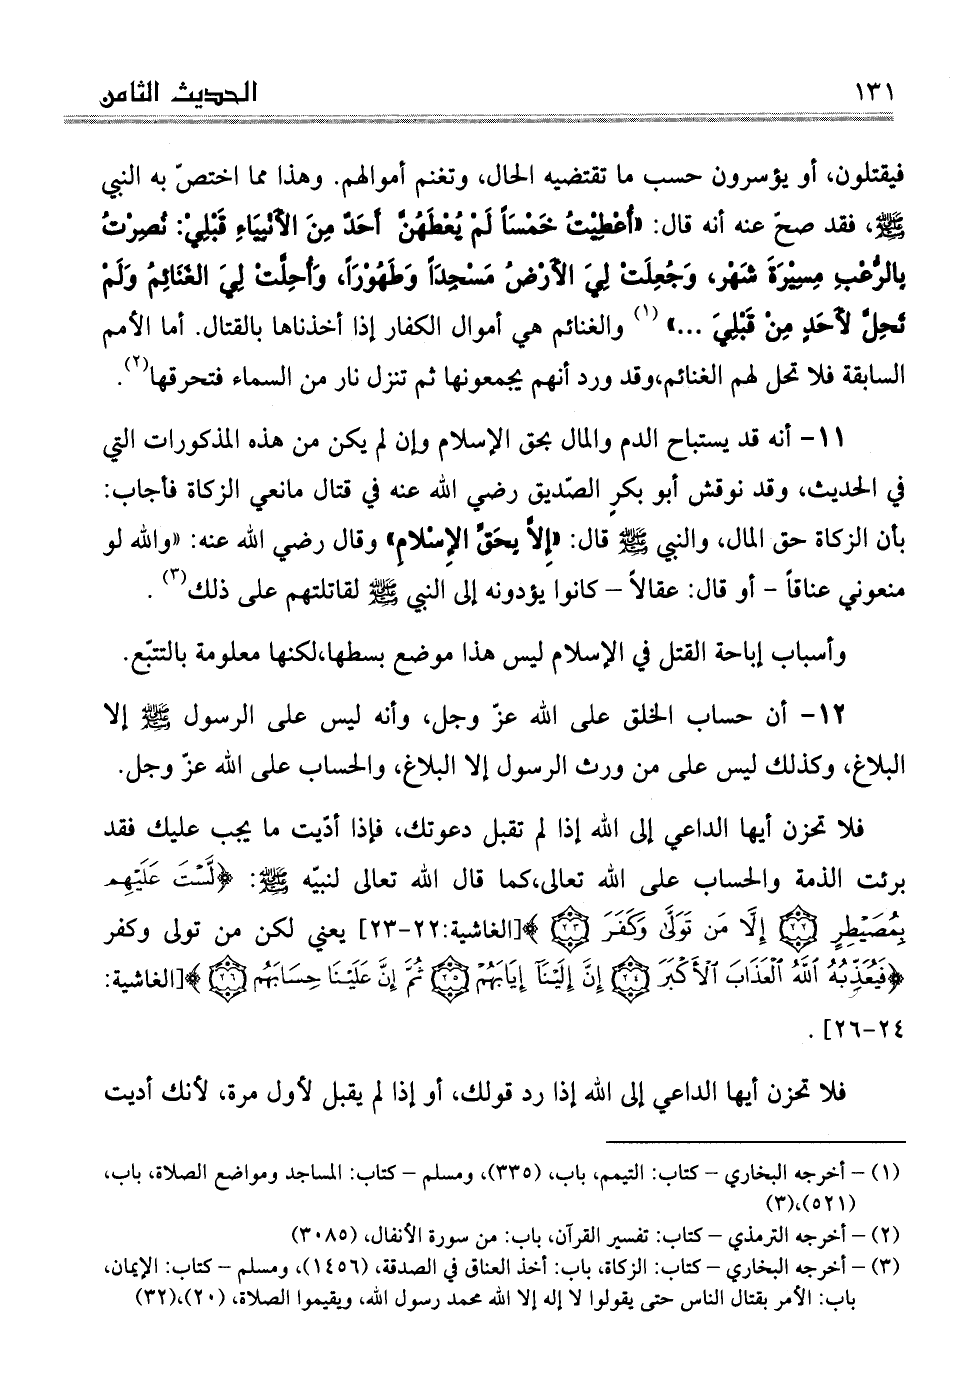 ١٣١ الحديث الثامن
فيقتلون، أو يؤسرون حسب ما تقتضيه الحال، وتغنم أموالهم. وهذا مما اختصّ به النبي
ﷺ، فقد صحّ عنه أنه قال: «أُعْطِيْتُ خَمْسَاً لَمْ يُعْطَهُنَّ أَحَدٌ مِنَ الأَنْبِيَاءِ قَبْلِيْ: نُصِرْتُ
بِالرُّعْبِ مِسِيْرَةَ شَهْر، وَجُعِلَتْ لِيَ الأَرْضُ مَسْجِدَاً وَطَهُوْرَاً، وَأُحِلَّتْ لِيَ الغَنَائِمُ وَلَمْ
تَحِلَّ لأَحَدٍ مِنْ قَبْلِيَ ...» (١) والغنائم هي أموال الكفار إذا أخذناها بالقتال. أما الأمم
السابقة فلا تحل لهم الغنائم،وقد ورد أنهم يجمعونها ثم تنزل نار من السماء فتحرقها(٢).
١١- أنه قد يستباح الدم والمال بحق الإسلام وإن لم يكن من هذه المذكورات التي
في الحديث، وقد نوقش أبو بكرٍ الصّديق رضي الله عنه في قتال مانعي الزكاة فأجاب:
بأن الزكاة حق المال، والنبي ﷺ قال: «إِلاَّ بِحَقَّ الإِسْلامِ» وقال رضي الله عنه: «والله لو
منعوني عناقاً – أو قال: عقالاً – كانوا يؤدونه إلى النبي ﷺ لقاتلتهم على ذلك(٣) .
وأسباب إباحة القتل في الإسلام ليس هذا موضع بسطها،لكنها معلومة بالتتبّع.
١٢- أن حساب الخلق على الله عزّ وجل، وأنه ليس على الرسول ﷺ إلا
البلاغ، وكذلك ليس على من ورث الرسول إلا البلاغ، والحساب على الله عزّ وجل.
فلا تحزن أيها الداعي إلى الله إذا لم تقبل دعوتك، فإذا أدّيت ما يجب عليك فقد
برئت الذمة والحساب على الله تعالى،كما قال الله تعالى لنبيّه ﷺ: ﴿لَّسْتَ عَلَيْهِم
بِمُصَيْطِرٍ ﴿٢٢﴾ إِلَّا مَن تَوَلَّىٰ وَكَفَرَ ﴿٢٣﴾ ﴾[الغاشية:٢٢-٢٣] يعني لكن من تولى وكفر
﴿فَيُعَذِّبُهُ ٱللَّهُ ٱلْعَذَابَ ٱلْأَكْبَرَ ﴿٢٤﴾ إِنَّ إِلَيْنَآ إِيَابَهُمْ ﴿٢٥﴾ ثُمَّ إِنَّ عَلَيْنَا حِسَابَهُم ﴿٢٦﴾ ﴾[الغاشية:
٢٤-٢٦] .
فلا تحزن أيها الداعي إلى الله إذا رد قولك، أو إذا لم يقبل لأول مرة، لأنك أديت
(١) – أخرجه البخاري – كتاب: التيمم، باب، (٣٣٥)، ومسلم – كتاب: المساجد ومواضع الصلاة، باب،
(٥٢١)،(٣)
(٢) – أخرجه الترمذي – كتاب: تفسير القرآن، باب: من سورة الأنفال، (٣٠٨٥)
(٣) – أخرجه البخاري – كتاب: الزكاة، باب: أخذ العناق في الصدقة، (١٤٥٦)، ومسلم – كتاب: الإيمان،
باب: الأمر بقتال الناس حتى يقولوا لا إله إلا الله محمد رسول الله، ويقيموا الصلاة، (٢٠)،(٣٢)